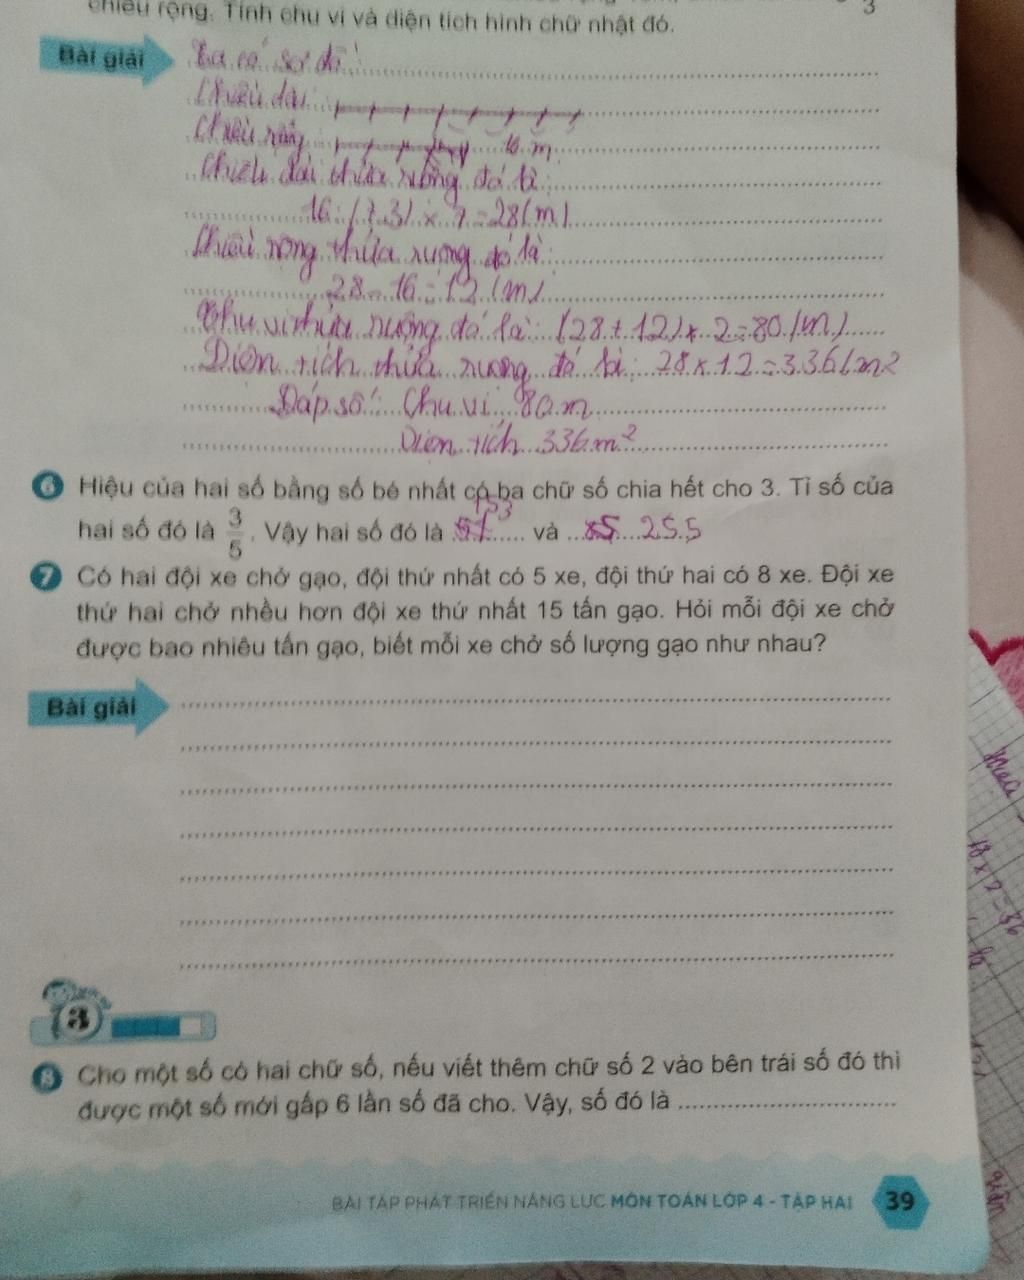 chiều rộng. Tính chu vi và diện tích hình chữ nhật đó.
3
Bài giải
Ta có sơ đồ:
Chiều dài
Chiều rộng 16 m
Chiều dài thửa ruộng đó là:
16 : (7-3) × 7 = 28 (m)
Chiều rộng thửa ruộng đó là:
28 - 16 = 12 (m)
Chu vi thửa ruộng đó là: (28 + 12) × 2 = 80 (m)
Diện tích thửa ruộng đó là: 28 × 12 = 336 (m²
Đáp số: Chu vi 80 m
Diện tích 336 m²
6 Hiệu của hai số bằng số bé nhất có ba chữ số chia hết cho 3. Tỉ số của
hai số đó là 3/5. Vậy hai số đó là 153 và 255
7 Có hai đội xe chở gạo, đội thứ nhất có 5 xe, đội thứ hai có 8 xe. Đội xe
thứ hai chở nhều hơn đội xe thứ nhất 15 tấn gạo. Hỏi mỗi đội xe chở
được bao nhiêu tấn gạo, biết mỗi xe chở số lượng gạo như nhau?
Bài giải
3
8 Cho một số có hai chữ số, nếu viết thêm chữ số 2 vào bên trái số đó thì
được một số mới gấp 6 lần số đã cho. Vậy, số đó là
BÀI TẬP PHÁT TRIỂN NĂNG LỰC MÔN TOÁN LỚP 4 - TẬP HAI 39
18 × 2 = 36